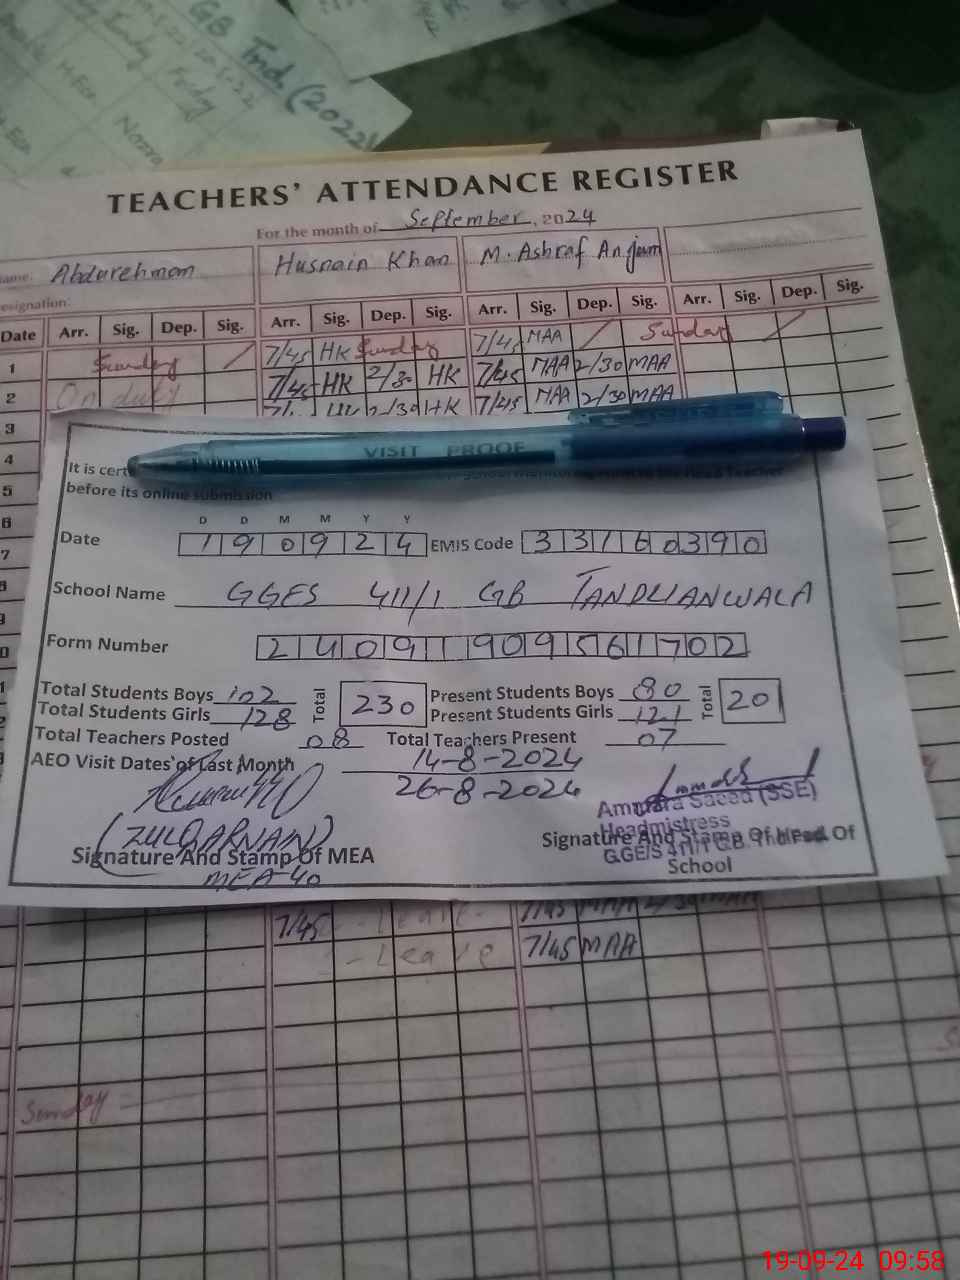 GB Tnd. (2022)
TEACHERS' ATTENDANCE REGISTER
For the month of September, 2024
Name. Abdurehman Husnain Khan M. Ashraf Anjum
Designation:
Date Arr. Sig. Dep. Sig. Arr. Sig. Dep. Sig. Arr. Sig. Dep. Sig. Arr. Sig. Dep. Sig.
1 Sunday 7/45 HK Sunday 7/45 MAA Sunday
2 On duty 7/45 HK 2/30 HK 7/45 MAA 2/30 MAA
3 2/30 HK 7/45 MAA 2/30 MAA
4
5
6
7
VISIT PROOF
It is
before its online submission
D D M M Y Y
Date 1 9 0 9 2 4 EMIS Code 3 3 1 6 0 3 9 0
School Name GGES 411/1 GB TANDLIANWALA
Form Number 2 4 0 9 1 9 0 9 5 6 1 7 0 2
Total Students Boys 102 Total 230 Present Students Boys 80 Total 201
Total Students Girls 128 Present Students Girls 121
Total Teachers Posted 08 Total Teachers Present 07
AEO Visit Dates of Last Month 14-8-2024
26-8-2024
(ZULQARNAIN)
Signature And Stamp Of MEA
MEA 40
Saeed (SSE)
Headmistress
Signature And Stamp Of Head Of
School
7/45 - Leave - 7/45 MAA 2/30 MAA
- Leave 7/45 MAA
Sunday
19-09-24 09:58